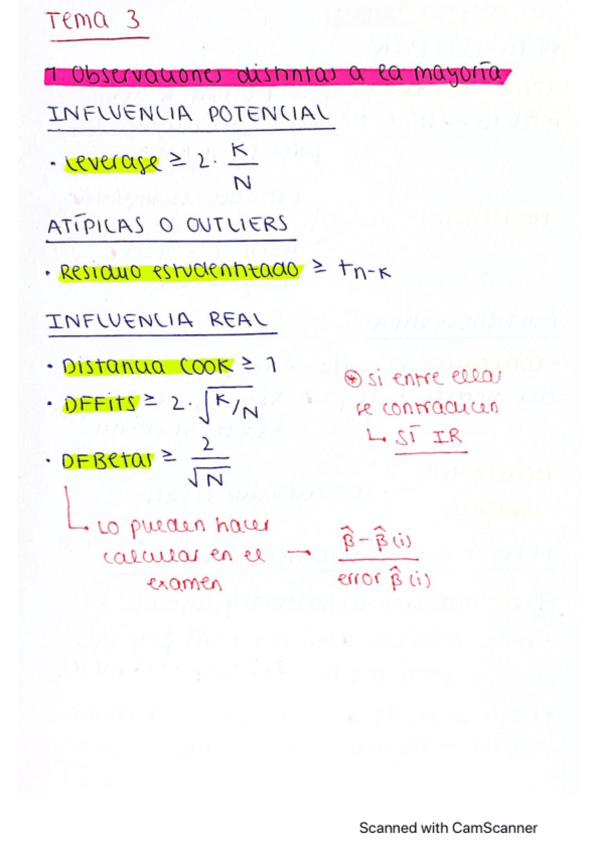 Tema 3
1. Observaciones distintas a la mayoría
INFLUENCIA POTENCIAL
• Leverage ≥ 2 · K/N
ATÍPICAS O OUTLIERS
• Residuo estudentizado ≥ t n-k
INFLUENCIA REAL
• Distancia COOK ≥ 1
• DFFits ≥ 2 · √K/N
• DFBetas ≥ 2/√N
⊛ si entre ellas
se contradicen
↳ SÍ IR
↳ Lo pueden hacer
calcular en el →
examen
β̂ - β̂ (i)
error β̂ (i)
Scanned with CamScanner